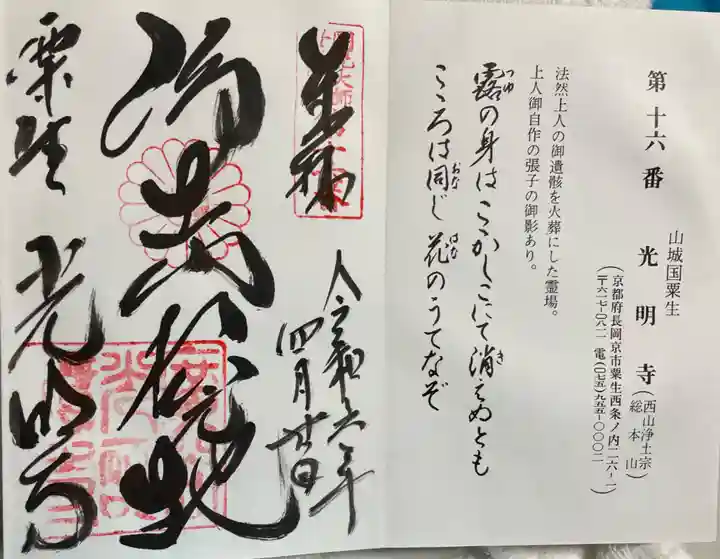 第十六番
山城国粟生
光明寺
(西山浄土宗
総本山)
(京都府長岡京市粟生西条ノ内二六-一
〒六一七-〇八一一 電(〇七五)九五五-〇〇〇二)
法然上人の御遺骸を火葬にした霊場。
上人御自作の張子の御影あり。
露の身はこゝかしこにて消えぬとも
つゆ
き
こゝろは同じ花のうてなぞ
おな
はな
奉拝
令和六年
四月廿日
粟生 光明寺